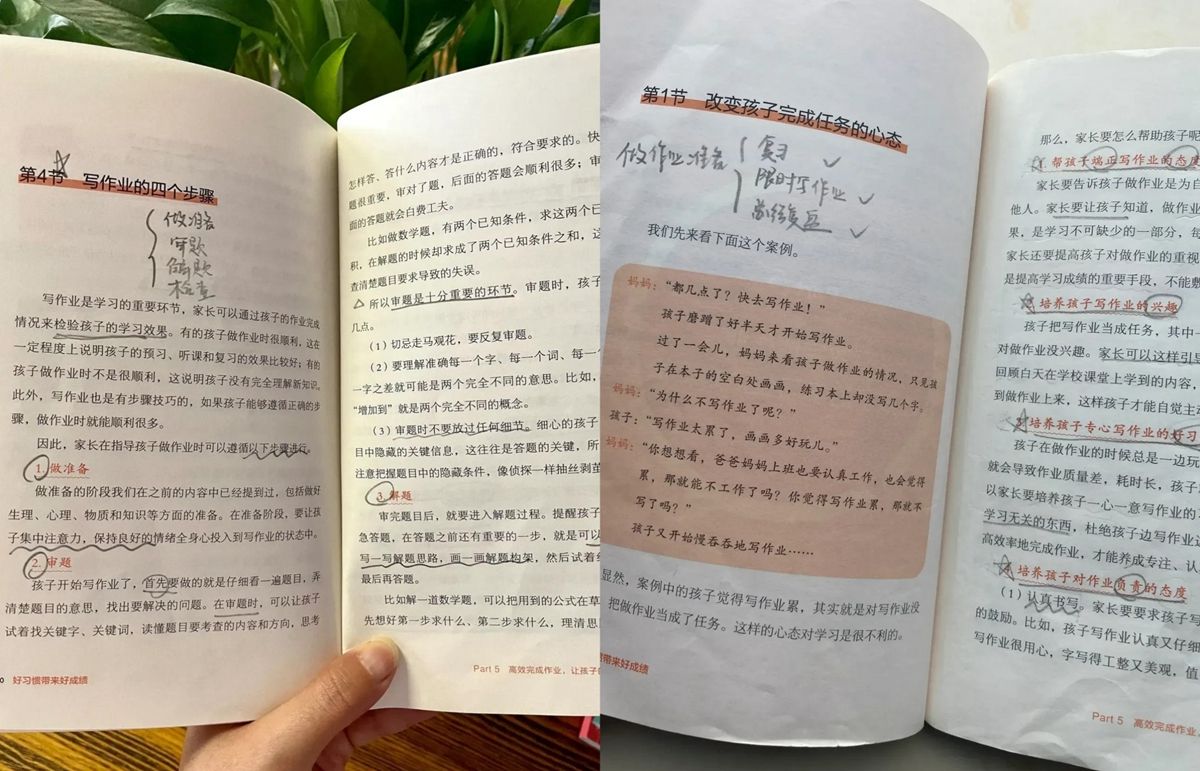 第4节 写作业的四个步骤
做准备
审题
解题
检查
写作业是学习的重要环节，家长可以通过孩子的作业完成
情况来检验孩子的学习效果。有的孩子做作业时很顺利，这在
一定程度上说明孩子的预习、听课和复习的效果比较好；有的
孩子做作业时不是很顺利，这说明孩子没有完全理解新知识。
此外，写作业也是有步骤技巧的，如果孩子能够遵循正确的步
骤，做作业时就能顺利很多。
因此，家长在指导孩子做作业时可以遵循以下步骤进行。
1.做准备
做准备的阶段我们在之前的内容中已经提到过，包括做好
生理、心理、物质和知识等方面的准备。在准备阶段，要让孩
子集中注意力，保持良好的情绪全身心投入到写作业的状态中。
2.审题
孩子开始写作业了，首先要做的就是仔细看一遍题目，弄
清楚题目的意思，找出要解决的问题。在审题时，可以让孩子
试着找关键字、关键词，读懂题目要考查的内容和方向，思考
好习惯带来好成绩
怎样答、答什么内容才是正确的，符合要求的。快
题很重要，审对了题，后面的答题会顺利很多；审
面的答题就会白费工夫。
比如做数学题，有两个已知条件，求这两个已
积，在解题的时候却求成了两个已知条件之和，这
查清楚题目要求导致的失误。
所以审题是十分重要的环节。审题时，孩子
几点。
（1）切忌走马观花，要反复审题。
（2）要理解准确每一个字、每一个词、每一
一字之差就可能是两个完全不同的意思。比如，
“增加到”就是两个完全不同的概念。
（3）审题时不要放过任何细节。细心的孩子
目中隐藏的关键信息，这往往是答题的关键，所
注意把握题目中的隐藏条件，像侦探一样抽丝剥茧
3.解题
审完题目后，就要进入解题过程。提醒孩子
急答题，在答题之前还有重要的一步，就是可以
写一写解题思路，画一画解题构架，然后试着
最后再答题。
比如解一道数学题，可以把用到的公式在草
先想好第一步求什么、第二步求什么，理清思
Part 5 高效完成作业，让孩子的
第1节 改变孩子完成任务的心态
做作业准备
复习
限时写作业
我们先来看下面这个案例。
妈妈：“都几点了？快去写作业！”
孩子磨蹭了好半天才开始写作业。
过了一会儿，妈妈来看孩子做作业的情况，只见孩
子在本子的空白处画画，练习本上却没写几个字。
妈妈：“为什么不写作业了呢？”
孩子：“写作业太累了，画画多好玩儿。”
妈妈：“你想想看，爸爸妈妈上班也要认真工作，也会觉得
累，那就能不工作了吗？你觉得写作业累，那就不
写了吗？”
孩子又开始慢吞吞地写作业……
显然，案例中的孩子觉得写作业累，其实就是对写作业没
把做作业当成了任务。这样的心态对学习是很不利的。
带来好成绩
那么，家长要怎么帮助孩子呢
帮孩子端正写作业的态度
家长要告诉孩子做作业是为自
他人。家长要让孩子知道，做作业
果，是学习不可缺少的一部分，每
家长还要提高孩子对做作业的重视
是提高学习成绩的重要手段，不能敷
培养孩子写作业的兴趣
孩子把写作业当成任务，其中一
对做作业没兴趣。家长可以这样引导
回顾白天在学校课堂上学到的内容，
到做作业上来，这样孩子才能自觉主
培养孩子专心写作业的好习
孩子在做作业的时候总是一边玩
就会导致作业质量差，耗时长，孩子
以家长要培养孩子一心一意写作业的
学习无关的东西，杜绝孩子边写作业
高效率地完成作业，才能养成专注、认
培养孩子对作业负责的态度
（1）认真书写。家长要要求孩子写
的鼓励。比如，孩子写作业认真又仔细
写作业很用心，字写得工整又美观，值
Part 5 高效完成作业，